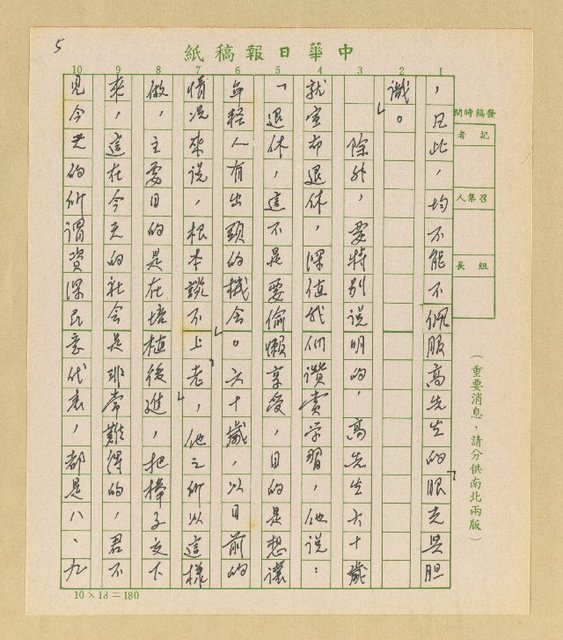 5
中華日報稿紙
1 2 3 4 5 6 7 8 9 10
發稿時間
記者
召集人
組長
(重要消息,請分供南北兩版)
,凡此,均不能不佩服高先生的「眼光與膽
識」。
除外,要特別說明的,高先生六十歲
就宣布退休,深值我們讚賞學習,他說:
「退休,這不是要偷懶享受,目的是想讓
年輕人有出頭的機會」。六十歲,以目前的
情況來說,根本談不上「老」,他之所以這樣
做,主要目的是在培植後進,把棒子交下
來,這在今天的社會是非常難得的,君不
見今天的所謂資深民意代表,都是八、九
10×18=180